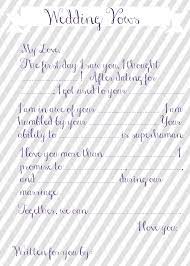 Wedding Vows
My Love,
The first day I saw you, I thought
____________! After dating for
________, I got used to your ________.
I am in awe of your ________. I am
humbled by your ________. Your
ability to ________ is superhuman.
I love you more than ________. I
promise to ________, ________,
and ________ during our
marriage.
Together, we can ________.
I love you!
Written for you by: